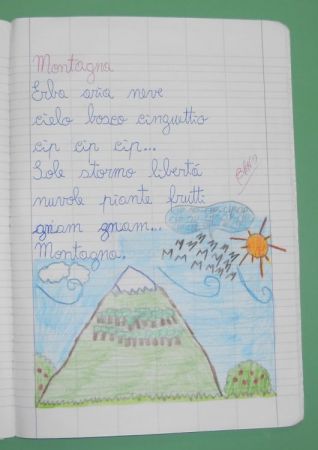 Montagna
Erba aria neve
cielo bosco cinguettio
cip cip cip...
Sole stormo libertá
nuvole piante frutti
gniam gnam...
Montagna.